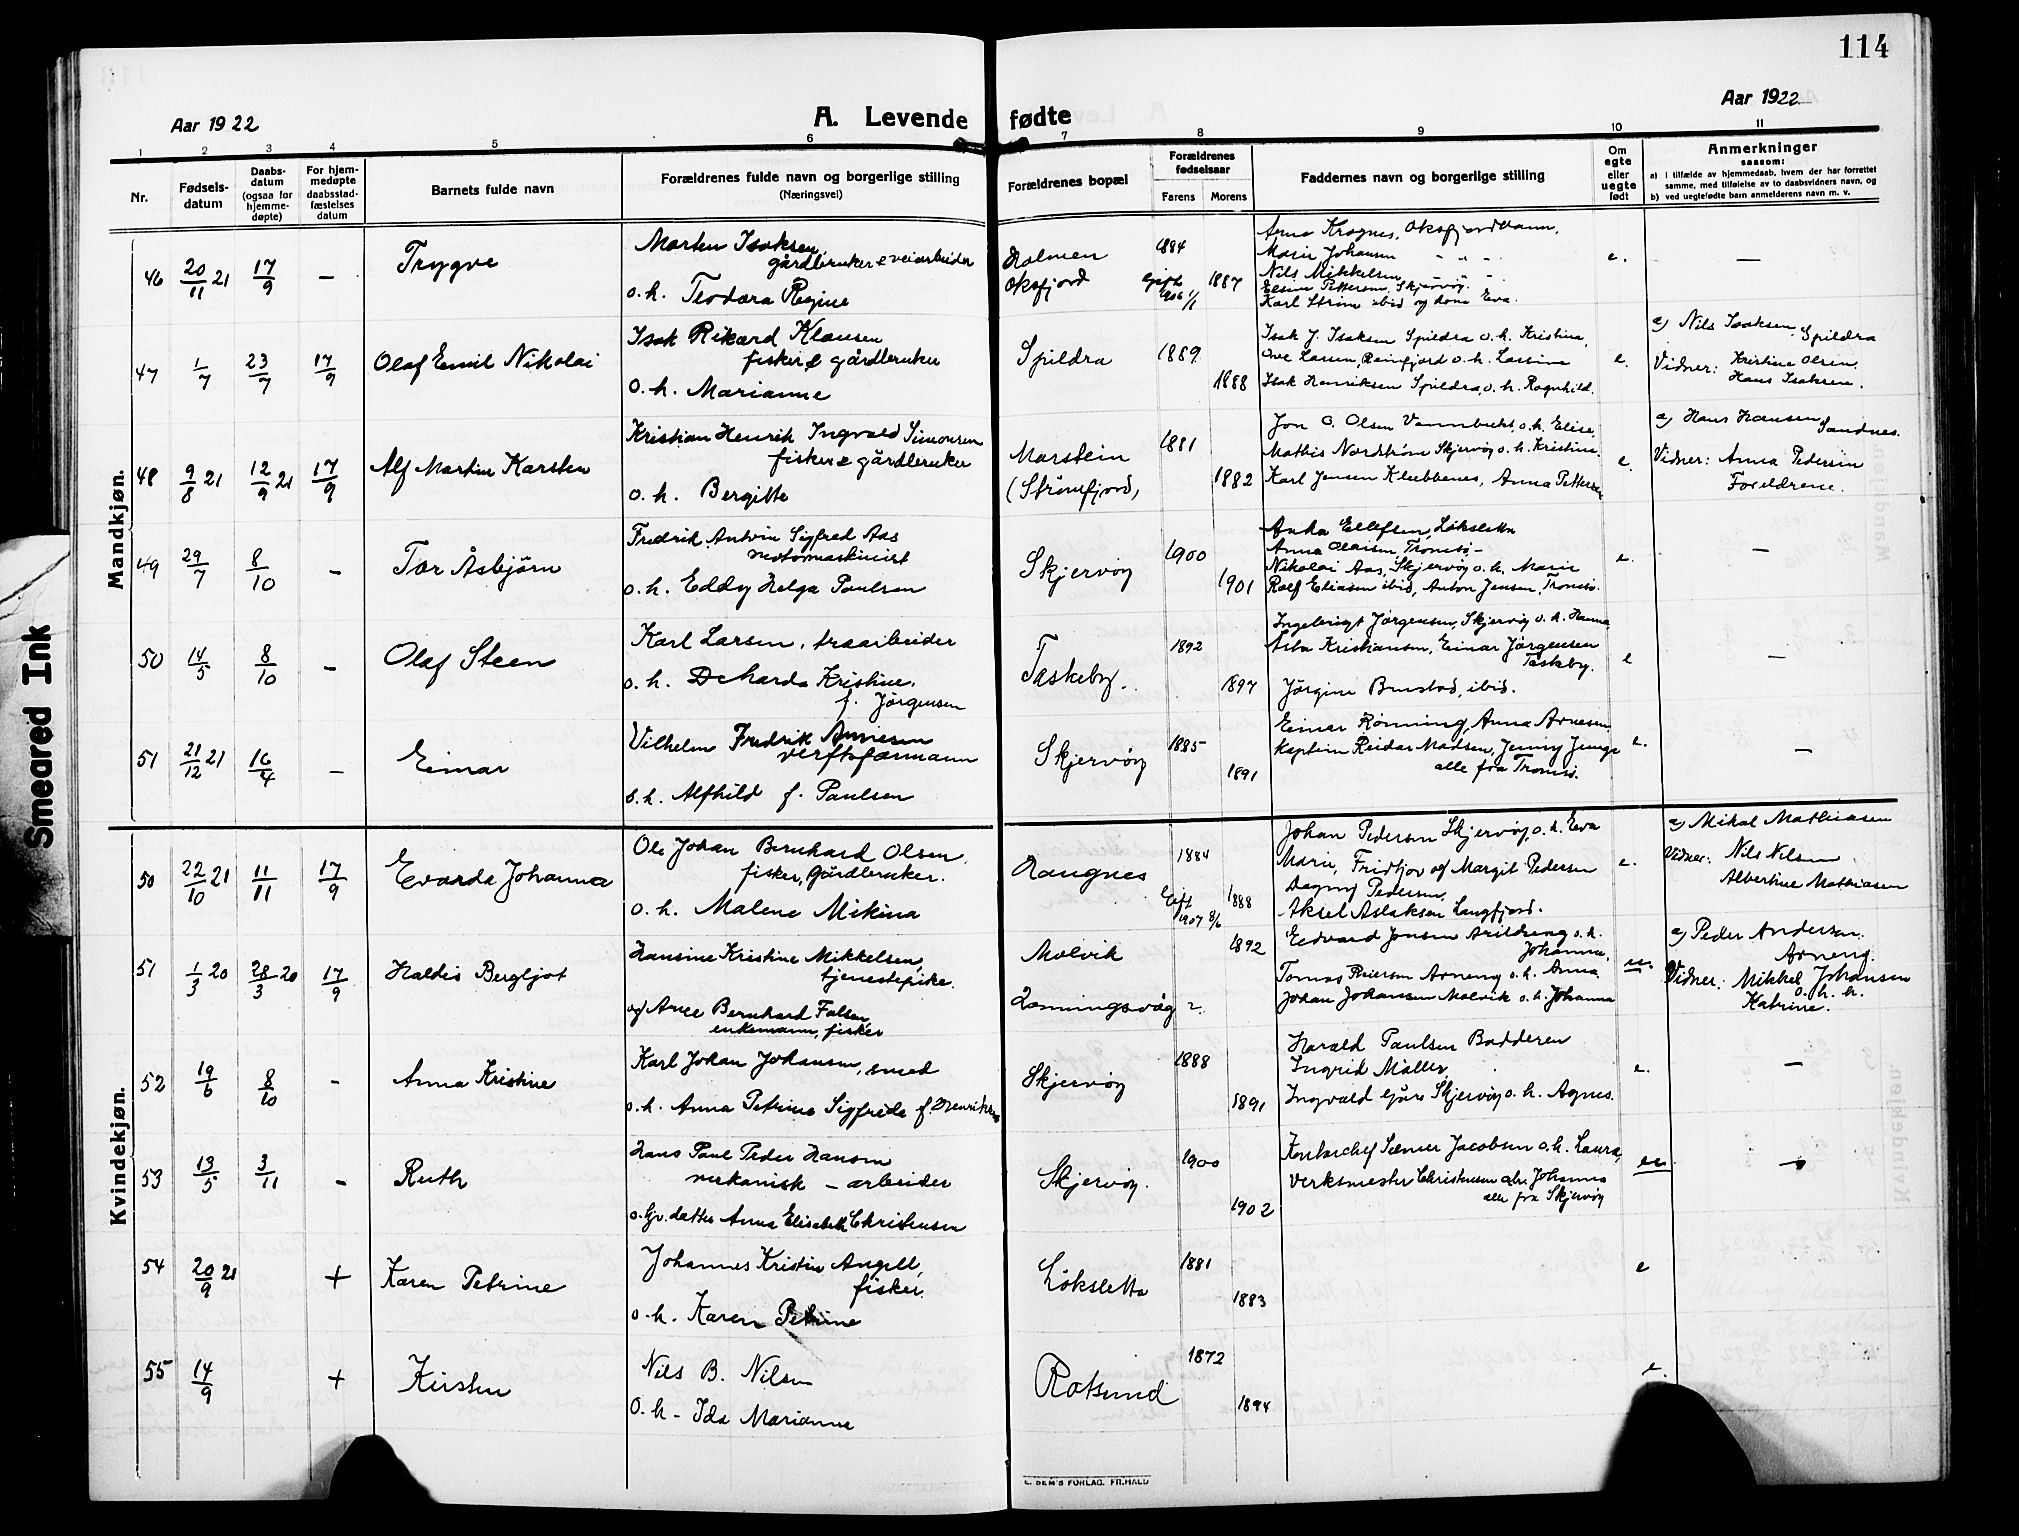 114
Aar 1922
A. Levende fødte
Aar 1922
1 2 3 4 5 6 7 8 9 10 11
Nr.
Fødsels-
datum
Daabs-
datum
(ogsaa for
hjemme-
døpte)
For hjem-
medøpte
daabsstad-
fæstelses
datum
Barnets fulde navn
Forældrenes fulde navn og borgerlige stilling
(Næringsvei)
Forældrenes bopæl
Forældrenes
fødselsaar
Farens Morens
Faddernes navn og borgerlige stilling
Om
egte
eller
uegte
født
Anmerkninger
saasom:
a) i tilfælde av hjemmedaab, hvem der har forrettet
samme, med tilføielse av to daabsvidners navn, og
b) ved uegtefødte barn anmelderens navn m. v.
Mandkjøn.
46 20/11 21 17/9 – Trygve
Morten Isaksen,
gårdbruker & veiarbeider
o. h. Teodora Regine
Holmen
Oksfjord
1884
Gift
1906 1/1
1887
Anna Krognes, Oksfjordvann,
Marie Johansen " " "
Nils Mikkelsen, " " "
Elsine Pettersen, Skjervöy.
Karl Strøm ibid og kone Eva.
e.
—
47 1/7 23/7 17/9 Olaf Emil Nikolai
Isak Rikard Klausen
fisker & gårdbruker
o. h. Marianne
Spildra
1889
1888
Isak J. Isaksen Spildra o. h. Kristine,
Ove Larsen, Reinfjord o. h. Lassine
Isak Henriksen Spildra, o. h. Ragnhild.
e.
a) Nils Isaksen, Spildra
Vidner: Kristine Olsen.
Hans Isaksen.
48 9/8 21 12/9 21 17/9 Alf Martin Karsten
Kristian Henrik Ingvald Simonsen
fisker & gårdbruker
o. h. Bergitte
Marstein
(Strömfjord)
1881
1882
Jon O. Olsen Vannbukt, o. h. Elise,
Mathis Nordström Skjervöy o. h. Kristine.
Karl Jensen Klubbenes, Anna Pettersen
e.
a) Hans Hansen Sandnes.
Vidner: Anna Pedersen
Foreldrene.
49 29/7 8/10 – Tor Åsbjörn
Fredrik Antoin Sigfred Aas
motormaskinist
o. h. Eddy Helga Paulsen
Skjervöy
1900
1901
Anka Ellefsen, Löksletta
Anna Olaisen, Tromsö –
Nikolai Aas, Skjervöy o. h. Marie
Rolf Eliasen ibid, Anton Jensen, Tromsö.
e.
—
50 14/5 8/10 – Olaf Steen
Karl Larsen, traarbeider
o. h. Deharda Kristine,
f. Jörgensen
Taskeby.
1892
1897
Ingebrigt Jörgensen, Skjervöy o. h. Hanna
Asta Kristiansen, Einar Jörgensen
Taskeby.
Jörgine Burstad, ibid.
e
—
51 21/12 21 16/4 – Einar
Vilhelm Fredrik Arnesen
verftsformann
o. h. Alfhild f. Paulsen
Skjervöy
1885
1891
Einar Rönning, Anna Arnesen
Kaptein Reidar Madsen, Jenny Junge
alle fra Tromsö.
e.
—
Kvindekjøn.
50 22/10 21 11/11 17/9 Evarda Johanna
Ole Johan Bernhard Olsen,
fisker, gårdbruker.
o. h. Malene Mikina
Haugnes
1884
Gift
1907 8/6
1888
Johan Pedersen Skjervöy, o. h. Eva
Marie, Fridtjov og Margit Pedersen
Dagny Pedersen,
Aksel Aslaksen Langfjord.
e.
a) Mikal Mathiasen
Vidner: Nils Nilsen
Albertine Mathiasen
51 1/3 20 28/3 20 17/9 Haldis Bergljot
Hansine Kristine Mikkelsen,
tjenestepike.
og Arne Bernhard Falsen,
enkemann, fisker
Molvik
Honningsvåg
?
1892
Eedvard Jonsen Årildseng o. h.
Johanna,
Tomas Reiersen Arneng o. h. Anna
Johan Johansen Molvik o. h. Johanna
ue.
a) Peder Andersen,
Arneng.
Vidner: Mikkel Johansen
o. h. h.
Katrine.
52 19/6 8/10 – Anna Kristine
Karl Johan Johansen, smed
o. h. Anna Petrine Sigfrida f. Henriksen
Skjervöy
1888
1891
Harald Paulsen Badderen
Ingrid Möller,
Ingvald Gjære Skjervöy o. h. Agnes.
e.
—
53 13/5 3/11 – Ruth
Hans Paul Peder Hansen
mekanisk – arbeider
o. Gv. datter Anna Elisabeth Christensen
Skjervöy.
1900
1902
Kontorchef Sæmer Jacobsen o. h. Laura,
Verksmester Christensen o. h. Johanna
alle fra Skjervöy
ue
—
54 20/9 21 + Karen Petrine
Johannes Kristin Angell,
fisker.
o. h. Karen Petrine
Löksletta
1881
1883
e
55 14/9 + Kirsten
Nils B. Nilsen
o. h. – Ida Marianne
Rotsund
1872
1894
e.
E. SEM'S FORLAG. FR.HALD
Smeared Ink